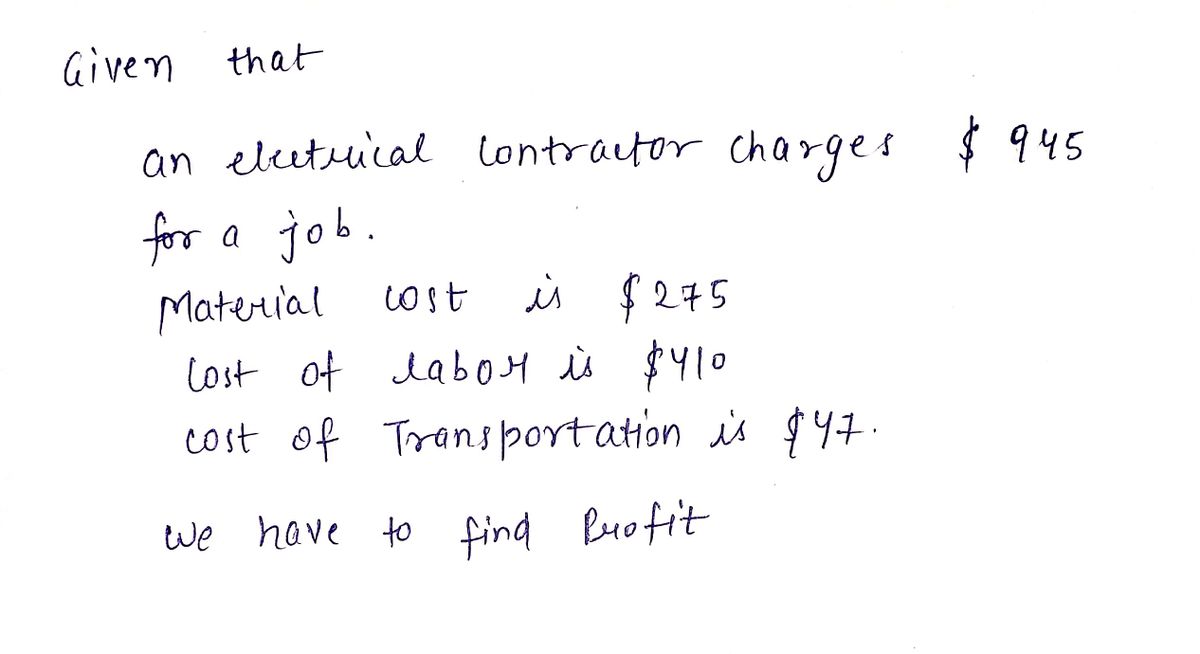 Given that
an electrical contractor charges $ 945
for a job.
Material cost is $275
Cost of labor is $410
cost of Transportation is $47.
we have to find Profit